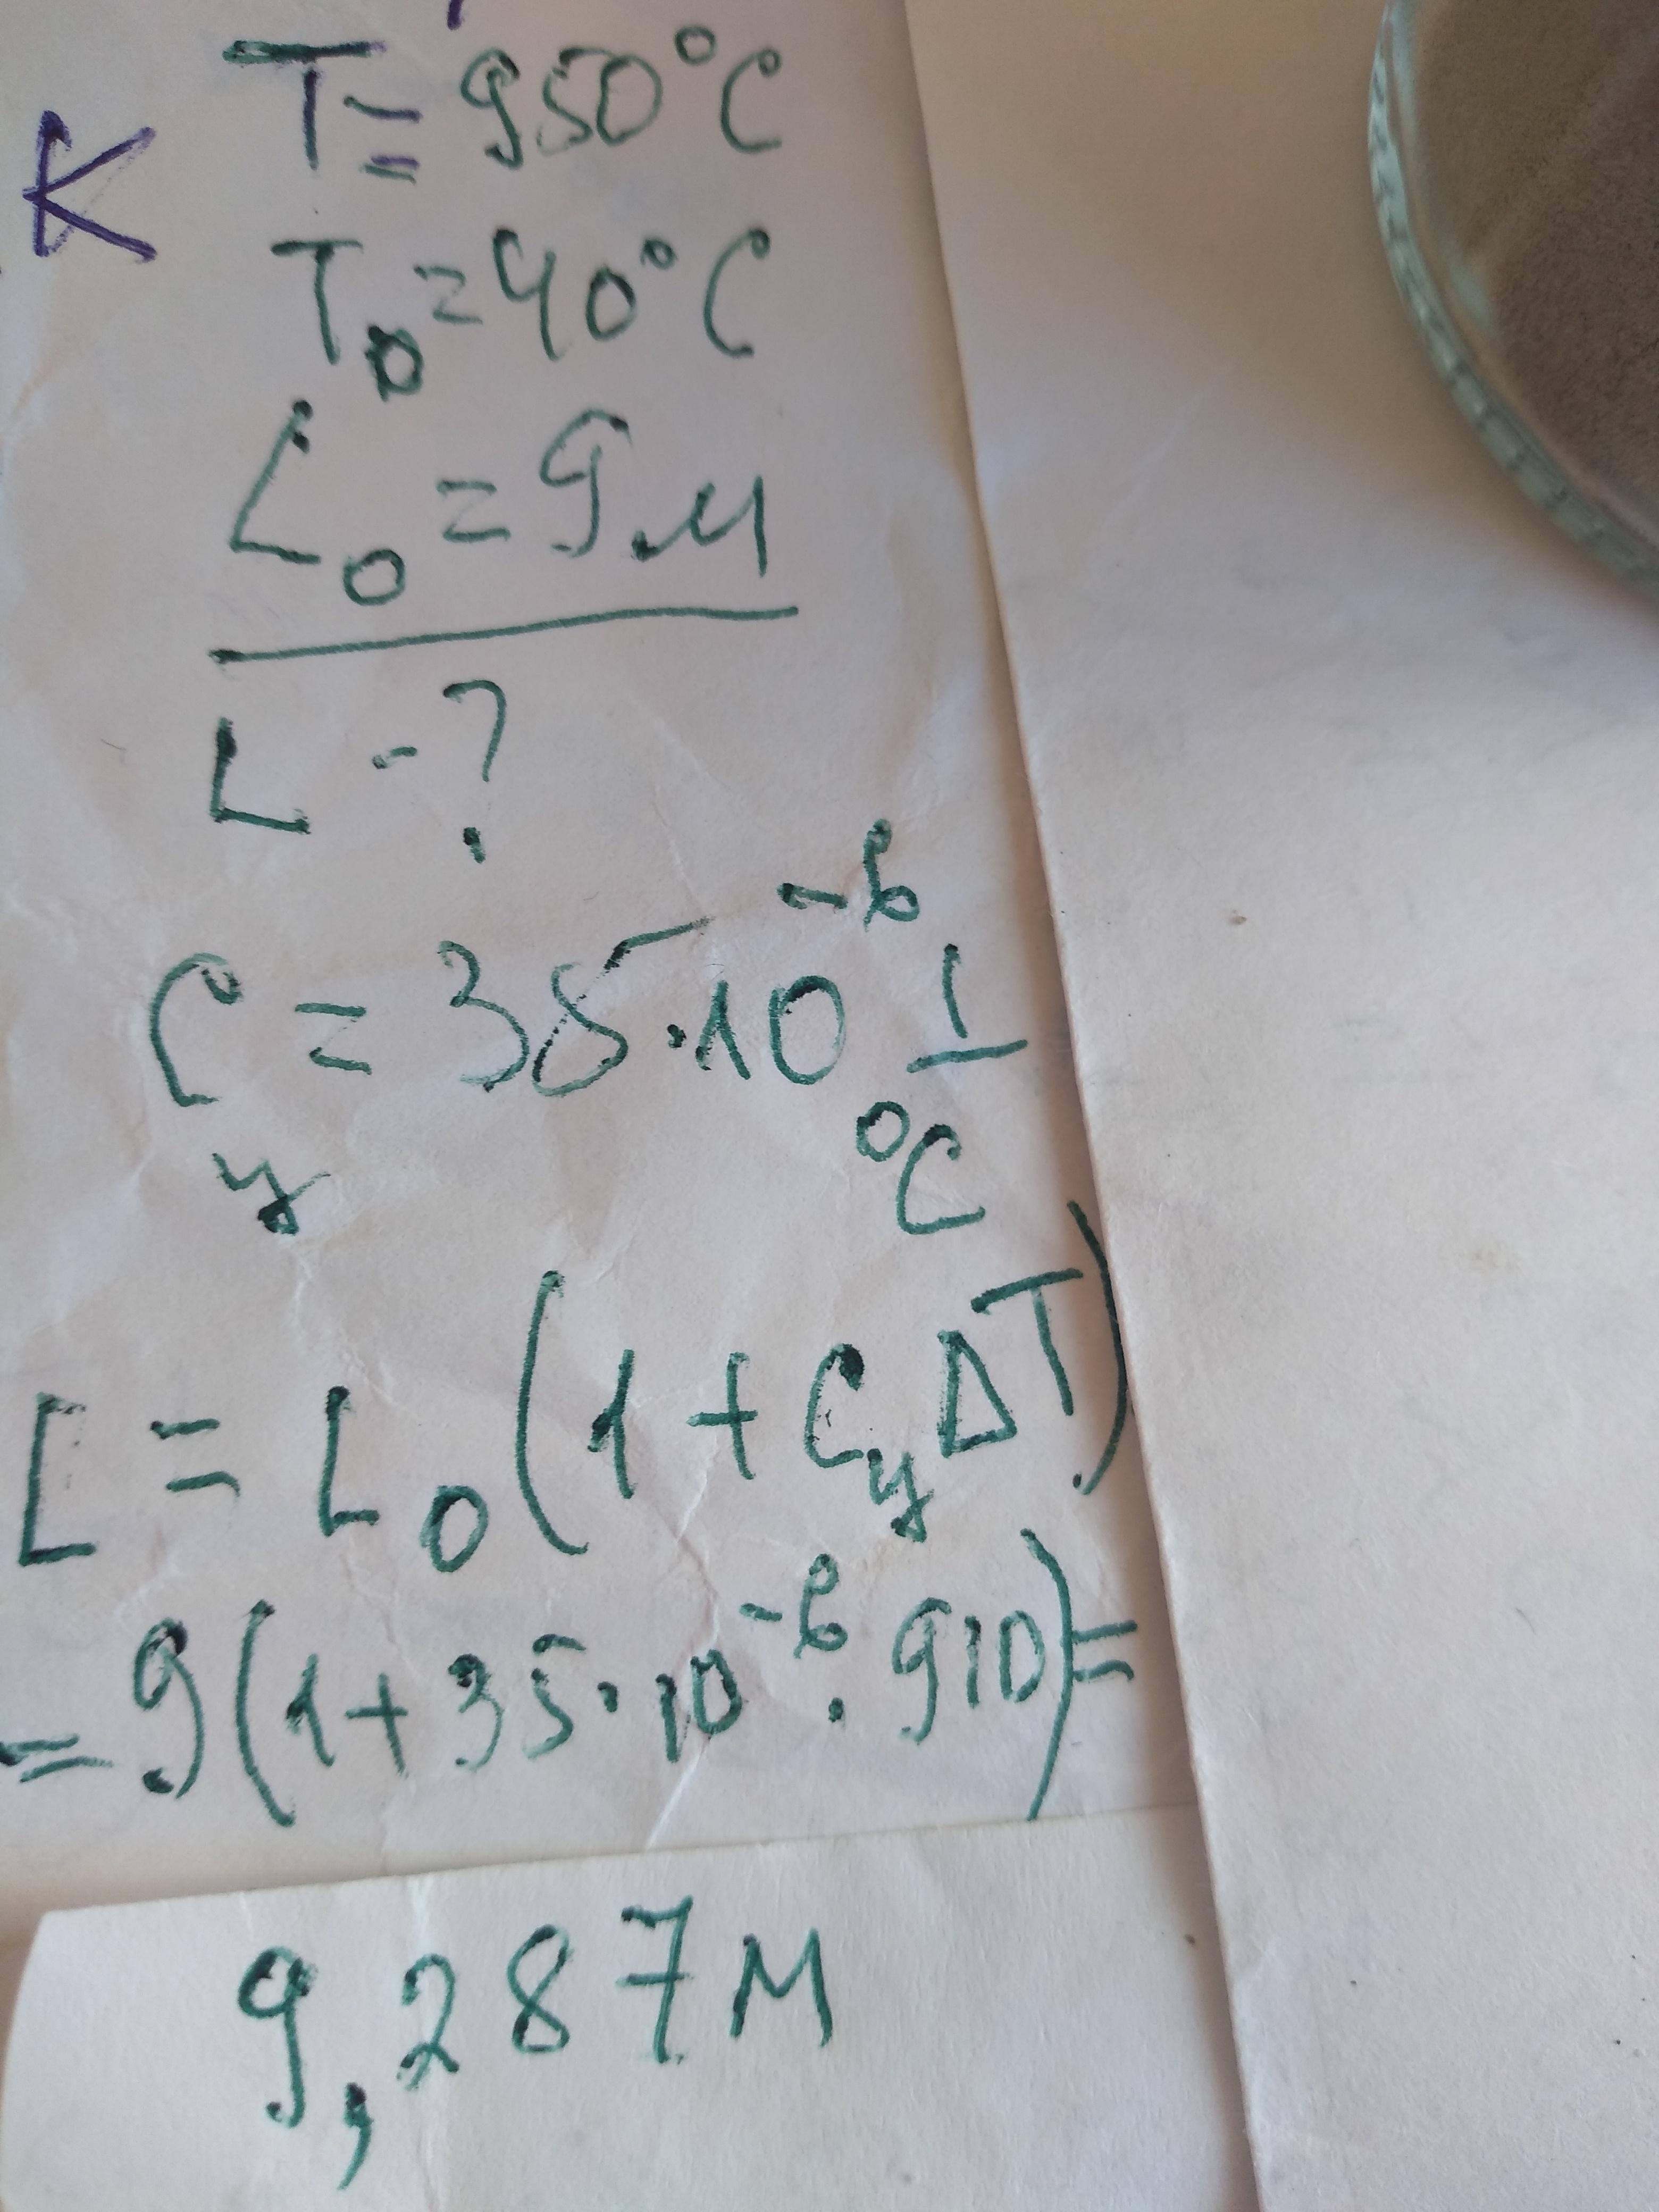 T = 950°C
K
T₀ = 40°C
L₀ = 9 м
L - ?
C_y = 35·10⁻⁶ 1/°C
L = L₀(1 + C_yΔT)
= 9(1 + 35·10⁻⁶·910) =
9,287 м